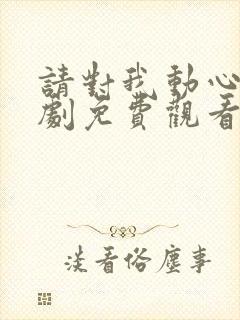 請對我動心
劇免費觀看
淡看俗塵事